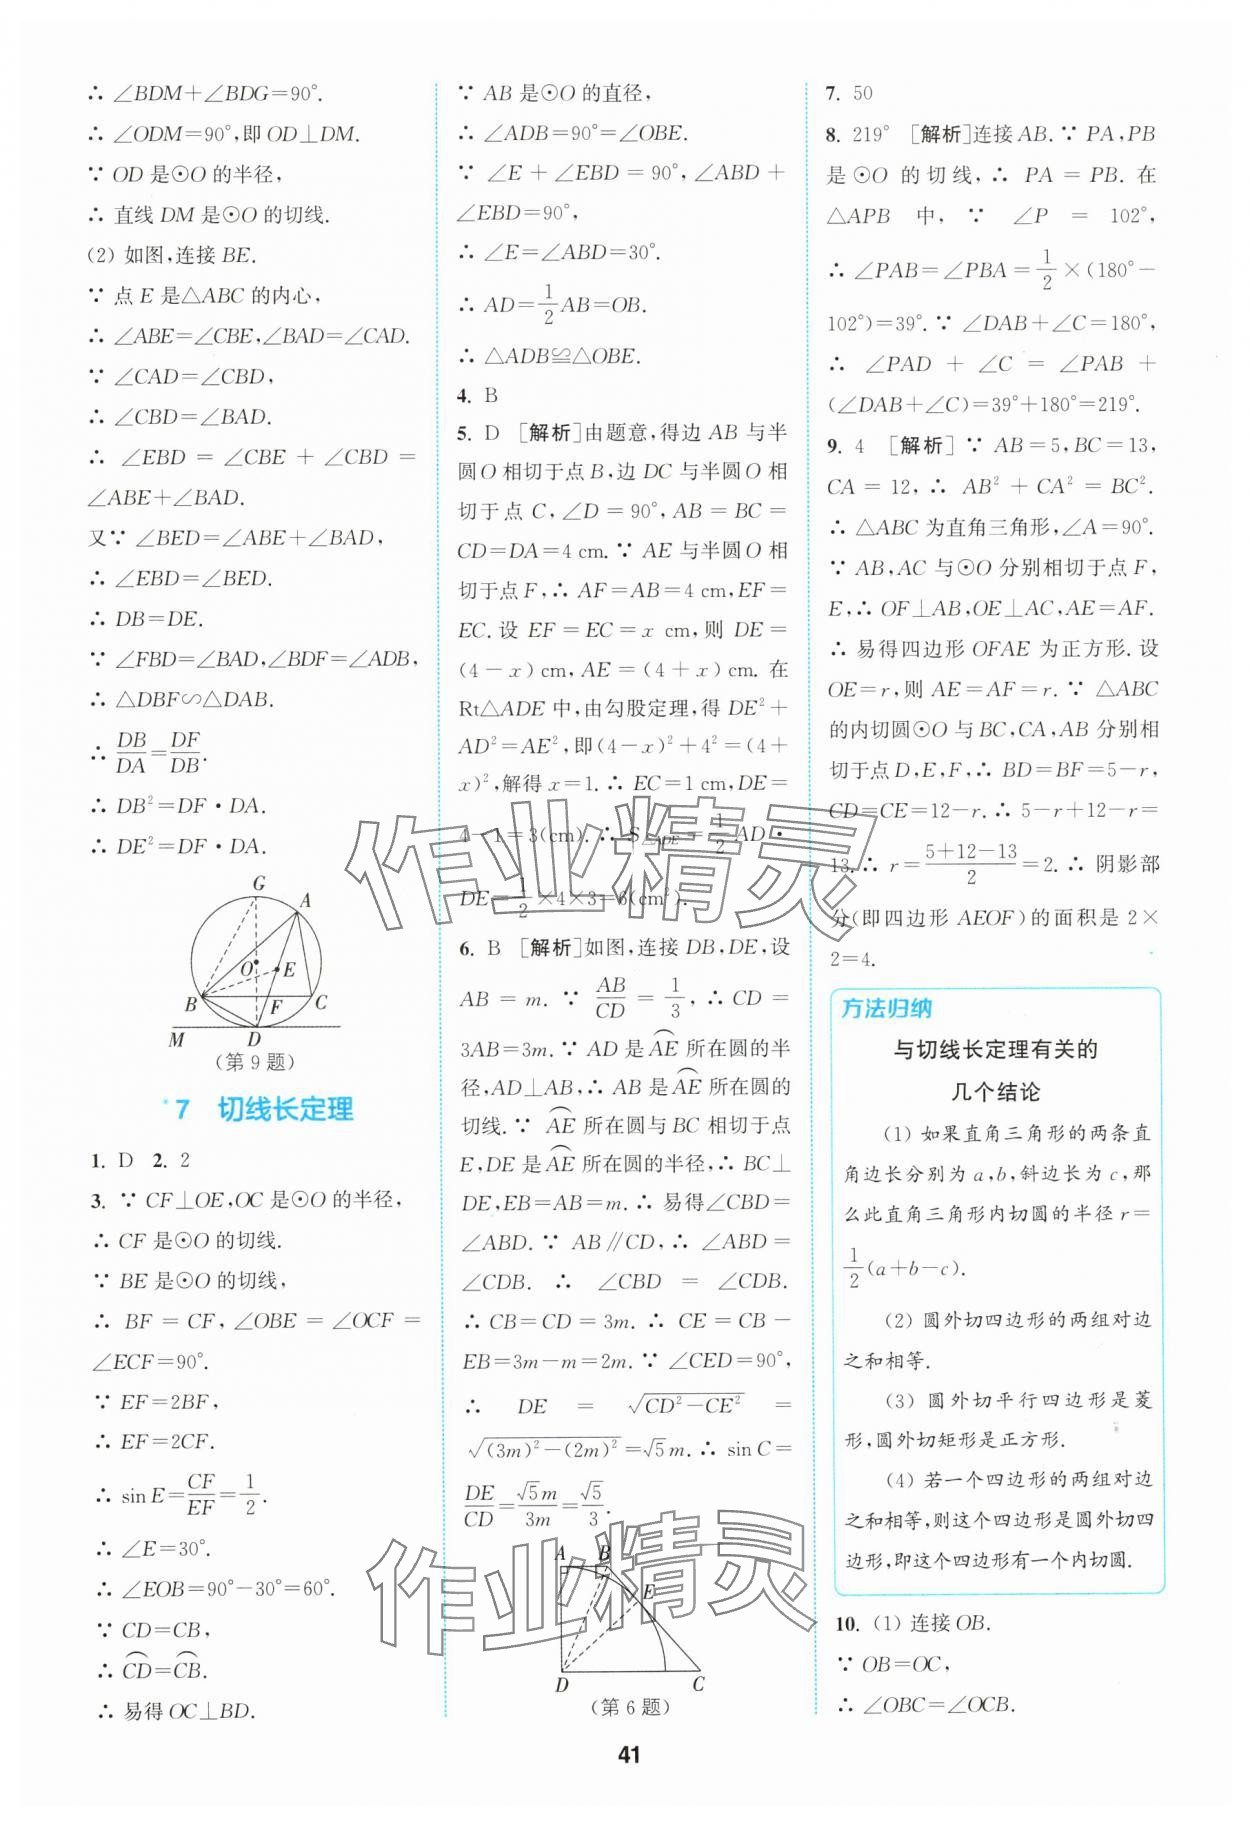 ∴ ∠BDM+∠BDG=90°.
∴ ∠ODM=90°,即OD⊥DM.
∵ OD是⊙O的半径,
∴ 直线DM是⊙O的切线.
(2) 如图,连接BE.
∵ 点E是△ABC的内心,
∴ ∠ABE=∠CBE,∠BAD=∠CAD.
∵ ∠CAD=∠CBD,
∴ ∠CBD=∠BAD.
∴ ∠EBD = ∠CBE + ∠CBD =
∠ABE+∠BAD.
又∵ ∠BED=∠ABE+∠BAD,
∴ ∠EBD=∠BED.
∴ DB=DE.
∵ ∠FBD=∠BAD,∠BDF=∠ADB,
∴ △DBF∽△DAB.
∴ DB/DA=DF/DB.
∴ DB²=DF·DA.
∴ DE²=DF·DA.
G
A
O
E
B
F
C
M
D
(第9题)
*7 切线长定理
1. D 2. 2
3. ∵ CF⊥OE,OC是⊙O的半径,
∴ CF是⊙O的切线.
∵ BE是⊙O的切线,
∴ BF = CF, ∠OBE = ∠OCF =
∠ECF=90°.
∵ EF=2BF,
∴ EF=2CF.
∴ sin E=CF/EF=1/2.
∴ ∠E=30°.
∴ ∠EOB=90°-30°=60°.
∵ CD=CB,
∴ ⌒CD=⌒CB.
∴ 易得OC⊥BD.
∵ AB是⊙O的直径,
∴ ∠ADB=90°=∠OBE.
∵ ∠E + ∠EBD = 90°, ∠ABD +
∠EBD=90°,
∴ ∠E=∠ABD=30°.
∴ AD=1/2AB=OB.
∴ △ADB≌△OBE.
4. B
5. D [解析]由题意,得边AB与半
圆O相切于点B,边DC与半圆O相
切于点C,∠D=90°,AB=BC=
CD=DA=4 cm.∵ AE与半圆O相
切于点F,∴ AF=AB=4 cm,EF=
EC.设EF=EC=x cm,则DE=
(4-x)cm,AE=(4+x)cm.在
Rt△ADE中,由勾股定理,得DE²+
AD²=AE²,即(4-x)²+4²=(4+
x)²,解得x=1.∴ EC=1 cm,DE=
4-1=3(cm).∴ S△ADE=1/2AD·
DE=1/2×4×3=6(cm²).
6. B [解析]如图,连接DB,DE,设
AB = m. ∵ AB/CD = 1/3, ∴ CD =
3AB=3m.∵ AD是⌒AE所在圆的半
径,AD⊥AB,∴ AB是⌒AE所在圆的
切线.∵ ⌒AE所在圆与BC相切于点
E,DE是⌒AE所在圆的半径,∴ BC⊥
DE,EB=AB=m.∴ 易得∠CBD=
∠ABD. ∵ AB∥CD, ∴ ∠ABD =
∠CDB. ∴ ∠CBD = ∠CDB.
∴ CB=CD=3m. ∴ CE=CB-
EB=3m-m=2m.∵ ∠CED=90°,
∴ DE = √(CD²-CE²) =
√((3m)²-(2m)²)=√5m.∴ sin C=
DE/CD=√5m/3m=√5/3.
A
B
E
D
C
(第6题)
7. 50
8. 219° [解析]连接AB.∵ PA,PB
是⊙O的切线,∴ PA=PB.在
△APB中,∵ ∠P = 102°,
∴ ∠PAB=∠PBA=1/2×(180°-
102°)=39°.∵ ∠DAB+∠C=180°,
∴ ∠PAD + ∠C = ∠PAB +
(∠DAB+∠C)=39°+180°=219°.
9. 4 [解析]∵ AB=5,BC=13,
CA=12,∴ AB²+CA²=BC².
∴ △ABC为直角三角形,∠A=90°.
∵ AB,AC与⊙O分别相切于点F,
E,∴ OF⊥AB,OE⊥AC,AE=AF.
∴ 易得四边形OFAE为正方形.设
OE=r,则AE=AF=r.∵ △ABC
的内切圆⊙O与BC,CA,AB分别相
切于点D,E,F,∴ BD=BF=5-r,
CD=CE=12-r.∴ 5-r+12-r=
13.∴ r=(5+12-13)/2=2.∴ 阴影部
分(即四边形AEOF)的面积是2×
2=4.
方法归纳
与切线长定理有关的
几个结论
(1) 如果直角三角形的两条直
角边长分别为a,b,斜边长为c,那
么此直角三角形内切圆的半径r=
1/2(a+b-c).
(2) 圆外切四边形的两组对边
之和相等.
(3) 圆外切平行四边形是菱
形,圆外切矩形是正方形.
(4) 若一个四边形的两组对边
之和相等,则这个四边形是圆外切四
边形,即这个四边形有一个内切圆.
10. (1) 连接OB.
∵ OB=OC,
∴ ∠OBC=∠OCB.
41
作业精灵
作业精灵